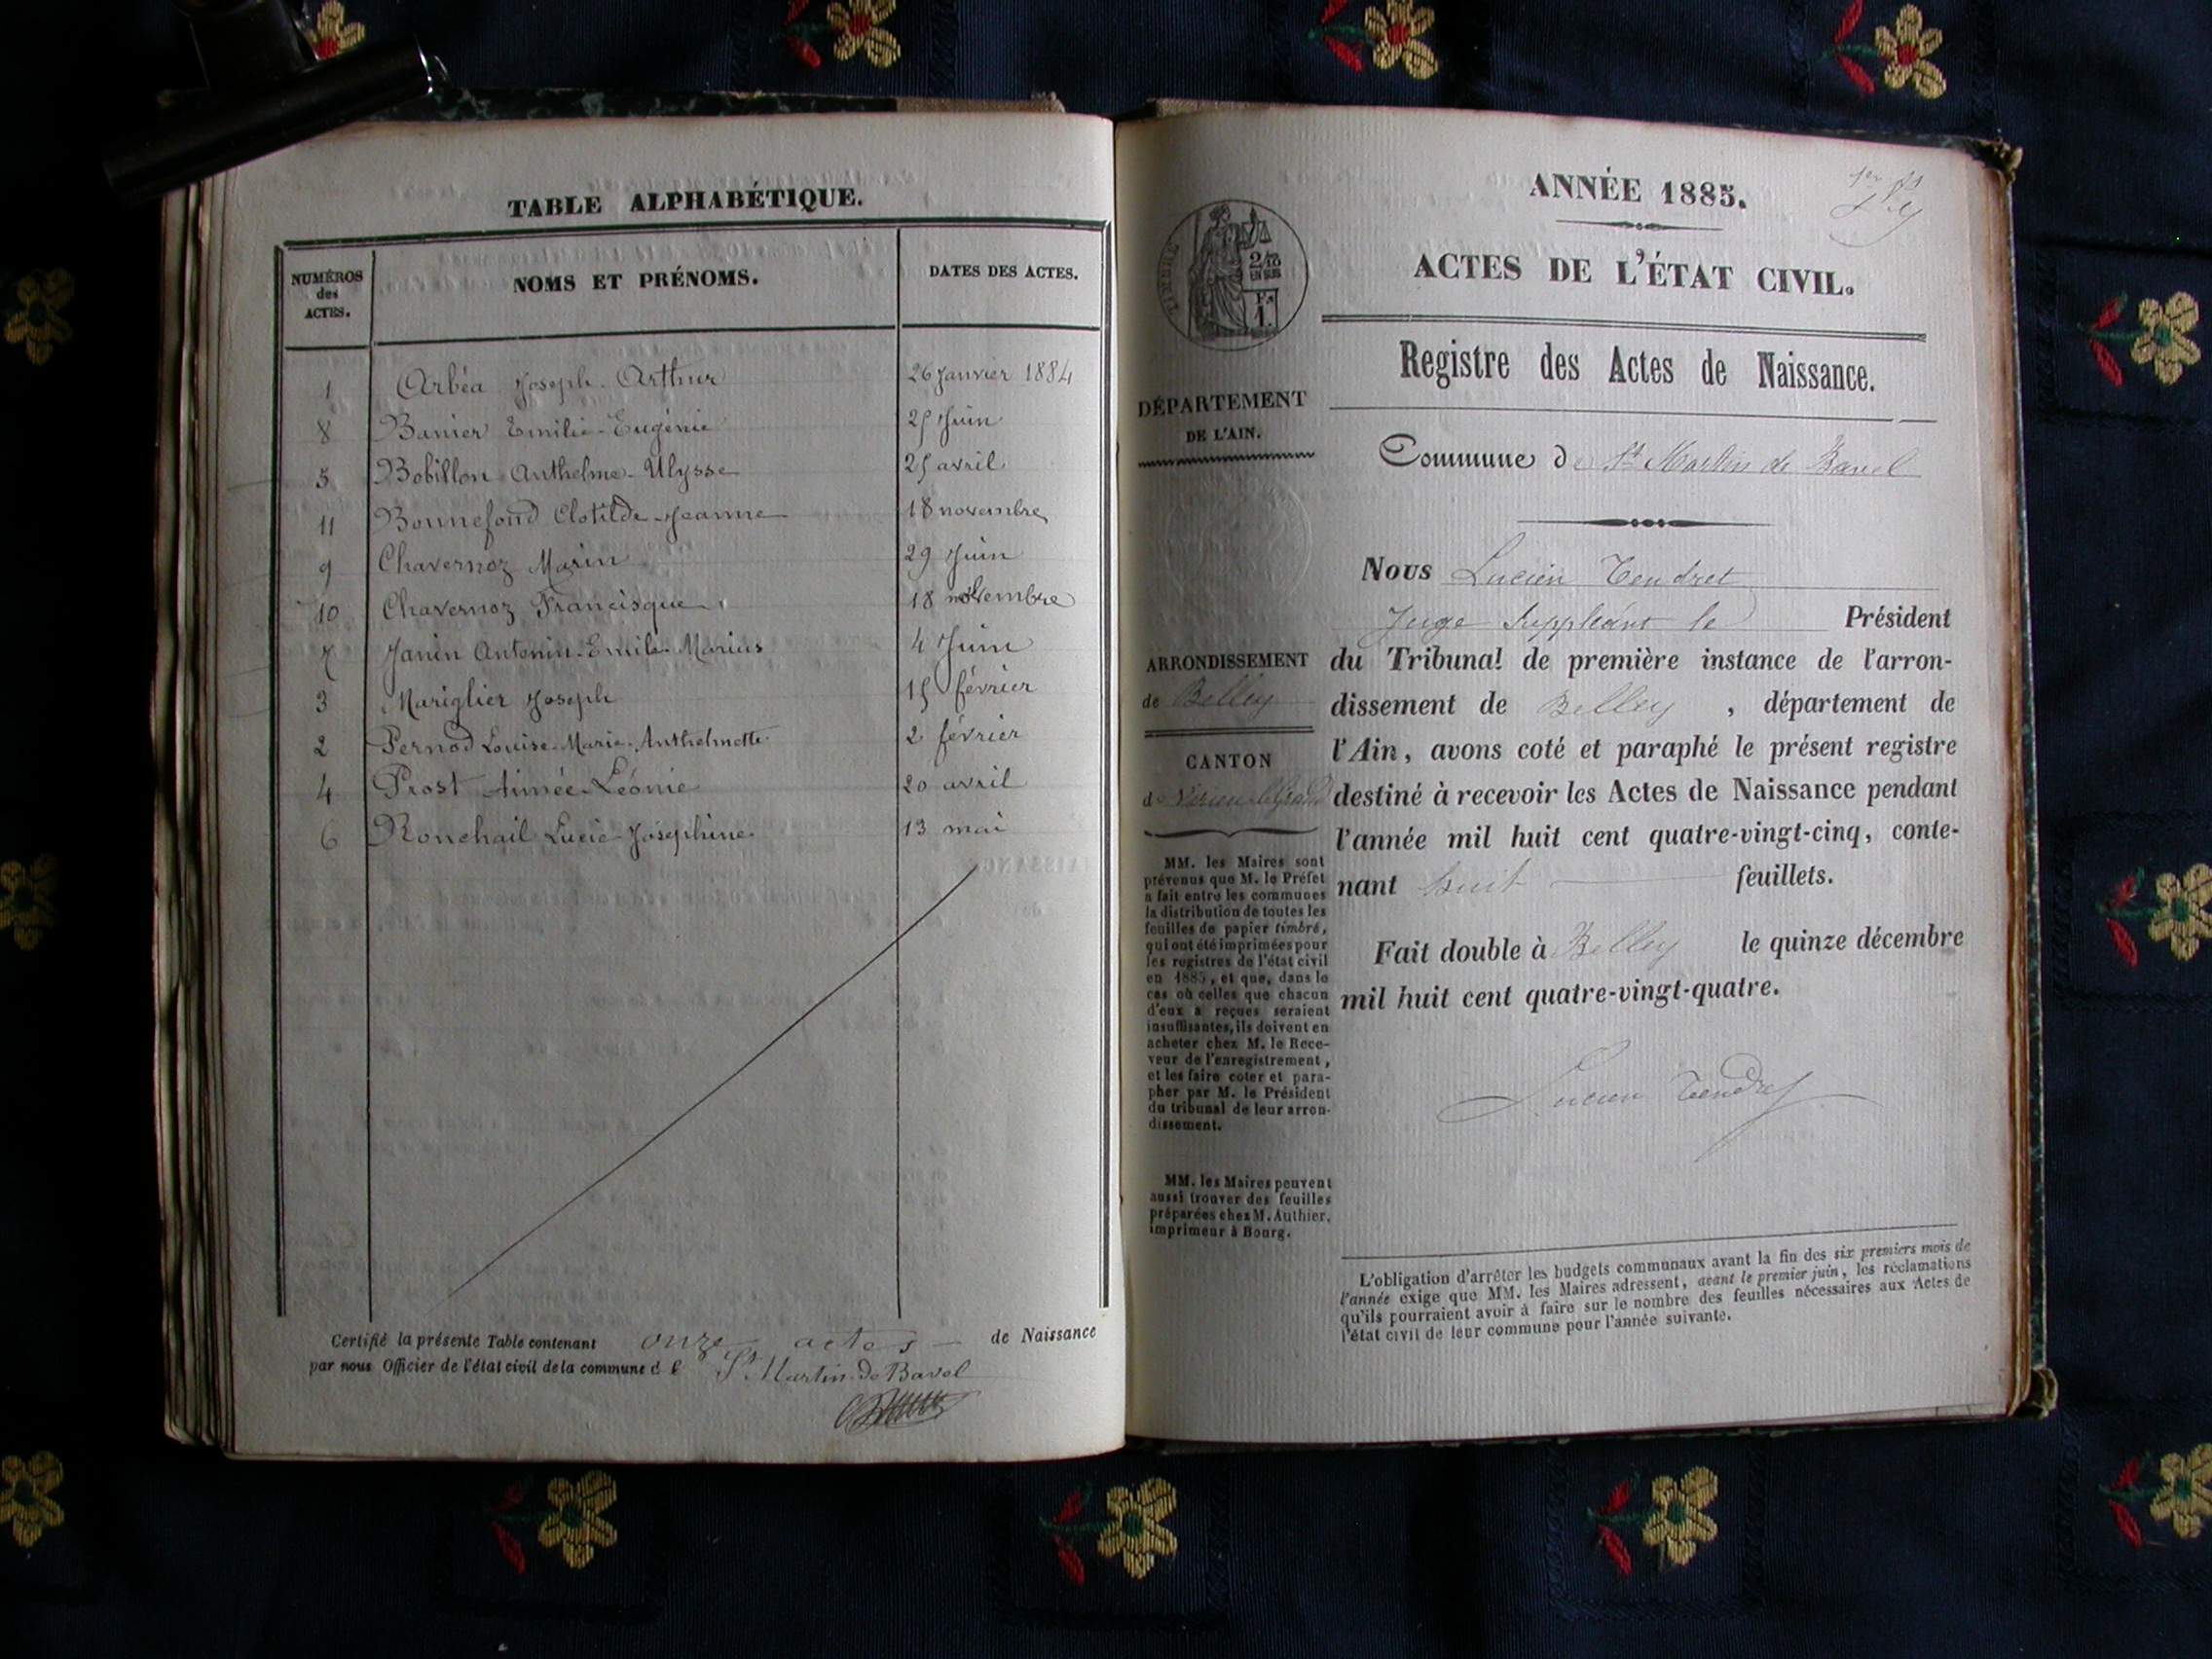 TABLE ALPHABÉTIQUE.
NUMÉROS
des
ACTES.
NOMS ET PRÉNOMS.
DATES DES ACTES.
1 Arbéa Joseph-Arthur 26 Janvier 1884
8 Banier Emilie-Eugénie 25 Juin
5 Bobillon Anthelme-Ulysse 25 avril
11 Bonnefond Clotilde-Jeanne 18 novembre
9 Chavernoz Marin 29 Juin
10 Chavernoz Francisque 18 novembre
7 Janin Antonin-Emile-Marius 4 Juin
3 Mariglier Joseph 15 février
2 Pernod Louise-Marie-Anthelmette 2 février
4 Prost Aimée-Léonie 20 avril
6 Ronchail Lucie-Joséphine 13 mai
Certifié la présente Table contenant onze actes de Naissance
par nous Officier de l'état civil de la commune de St Martin-de-Bavel
ANNÉE 1885.
ACTES DE L'ÉTAT CIVIL.
TIMBRE
2/10
EN SUS
Fc
1.
Registre des Actes de Naissance.
DÉPARTEMENT
DE L'AIN.
Commune de St Martin de Bavel
Nous Lucien Tendret
Juge Suppléant le Président
du Tribunal de première instance de l'arron-
dissement de Belley, département de
l'Ain, avons coté et paraphé le présent registre
destiné à recevoir les Actes de Naissance pendant
l'année mil huit cent quatre-vingt-cinq, conte-
nant huit feuillets.
Fait double à Belley le quinze décembre
mil huit cent quatre-vingt-quatre.
Lucien Tendret
ARRONDISSEMENT
de Belley
CANTON
de Virieu-le-Grand
MM. les Maires sont
prévenus que M. le Préfet
a fait entre les communes
la distribution de toutes les
feuilles de papier timbré,
qui ont été imprimées pour
les registres de l'état civil
en 1885, et que, dans le
cas où celles que chacun
d'eux a reçues seraient
insuffisantes, ils doivent en
acheter chez M. le Rece-
veur de l'enregistrement,
et les faire coter et para-
pher par M. le Président
du tribunal de leur arron-
dissement.
MM. les Maires peuvent
aussi trouver des feuilles
préparées chez M. Authier,
imprimeur à Bourg.
L'obligation d'arrêter les budgets communaux avant la fin des six premiers mois de
l'année exige que MM. les Maires adressent, avant le premier juin, les réclamations
qu'ils pourraient avoir à faire sur le nombre des feuilles nécessaires aux Actes de
l'état civil de leur commune pour l'année suivante.